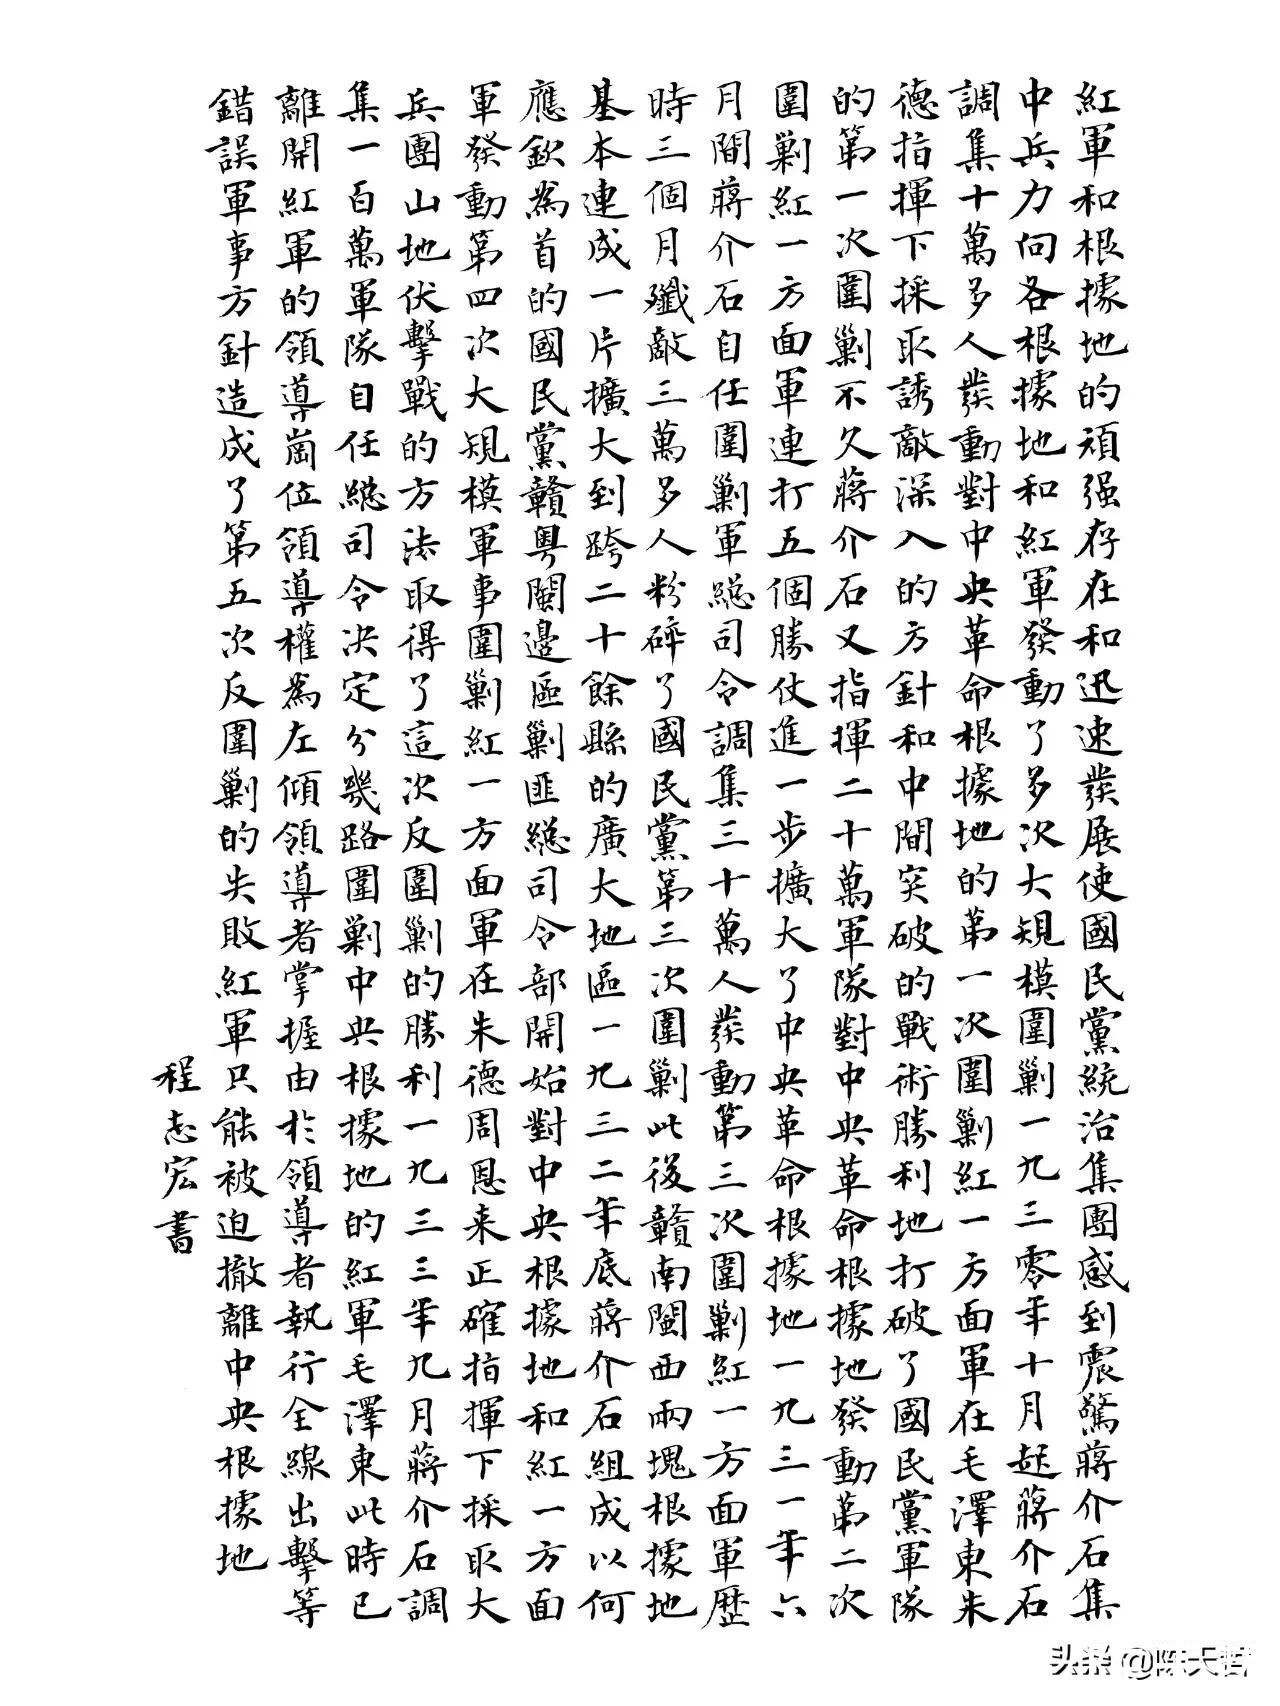 紅軍和根據地的頑强存在和迅速發展使國民黨統治集團感到震驚蔣介石集
中兵力向各根據地和紅軍發動了多次大規模圍剿一九三零年十月起蔣介石
調集十萬多人發動對中央革命根據地的第一次圍剿紅一方面軍在毛澤東朱
德指揮下採取誘敵深入的方針和中間突破的戰術勝利地打破了國民黨軍隊
的第一次圍剿不久蔣介石又指揮二十萬軍隊對中央革命根據地發動第二次
圍剿紅一方面軍連打五個勝仗進一步擴大了中央革命根據地一九三一年六
月間蔣介石自任圍剿軍總司令調集三十萬人發動第三次圍剿紅一方面軍歷
時三個月殲敵三萬多人粉碎了國民黨第三次圍剿此後贛南閩西兩塊根據地
基本連成一片擴大到跨二十餘縣的廣大地區一九三二年底蔣介石組成以何
應欽為首的國民黨贛粵閩邊區剿匪總司令部開始對中央根據地和紅一方面
軍發動第四次大規模軍事圍剿紅一方面軍在朱德周恩来正確指揮下採取大
兵團山地伏擊戰的方法取得了這次反圍剿的勝利一九三三年九月蔣介石調
集一百萬軍隊自任總司令决定分幾路圍剿中央根據地的紅軍毛澤東此時已
離開紅軍的領導崗位領導權為左傾領導者掌握由於領導者執行全線出擊等
錯誤軍事方針造成了第五次反圍剿的失敗紅軍只能被迫撤離中央根據地
程志宏書
头条@陈天哲